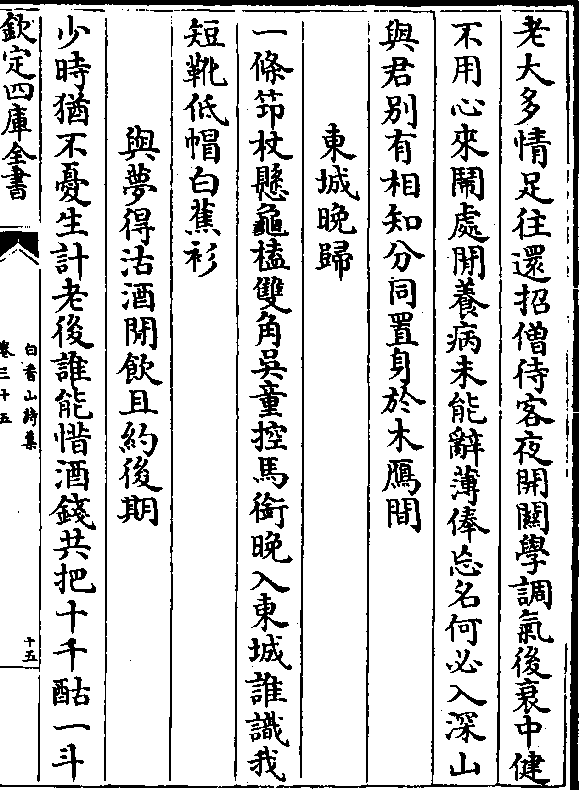 老大多情足往還招僧待客夜開關學調氣後衰中健
不用心來鬧處閒養病未能辭薄俸忘名何必入深山
與君別有相知分同置身於木鴈間
東城晚歸
一條笻杖懸龜榼雙角吳童控馬銜晚入東城誰識我
短靴低帽白蕉衫
與夢得沽酒閒飲且約後期
少時猶不憂生計老後誰能惜酒錢共把十千酤一斗
欽定四庫全書
白香山詩集
卷三十五
十五